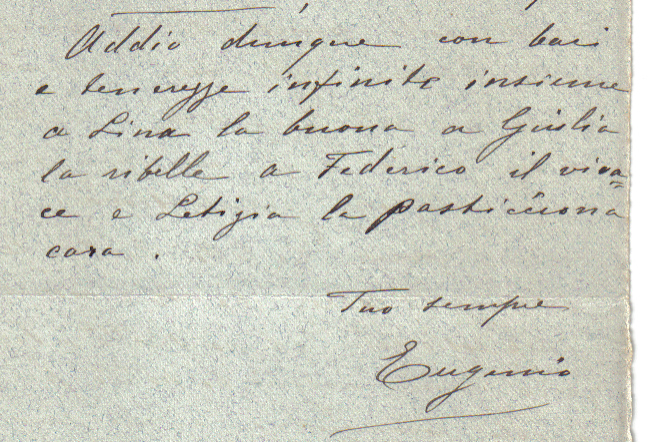 Addio dunque con baci
e tenerezze infinite insieme
a Lina la buona a Giulia
la ribelle a Federico il viva=
ce e Letizia la pasticciona
cara .
Tuo sempre
Eugenio